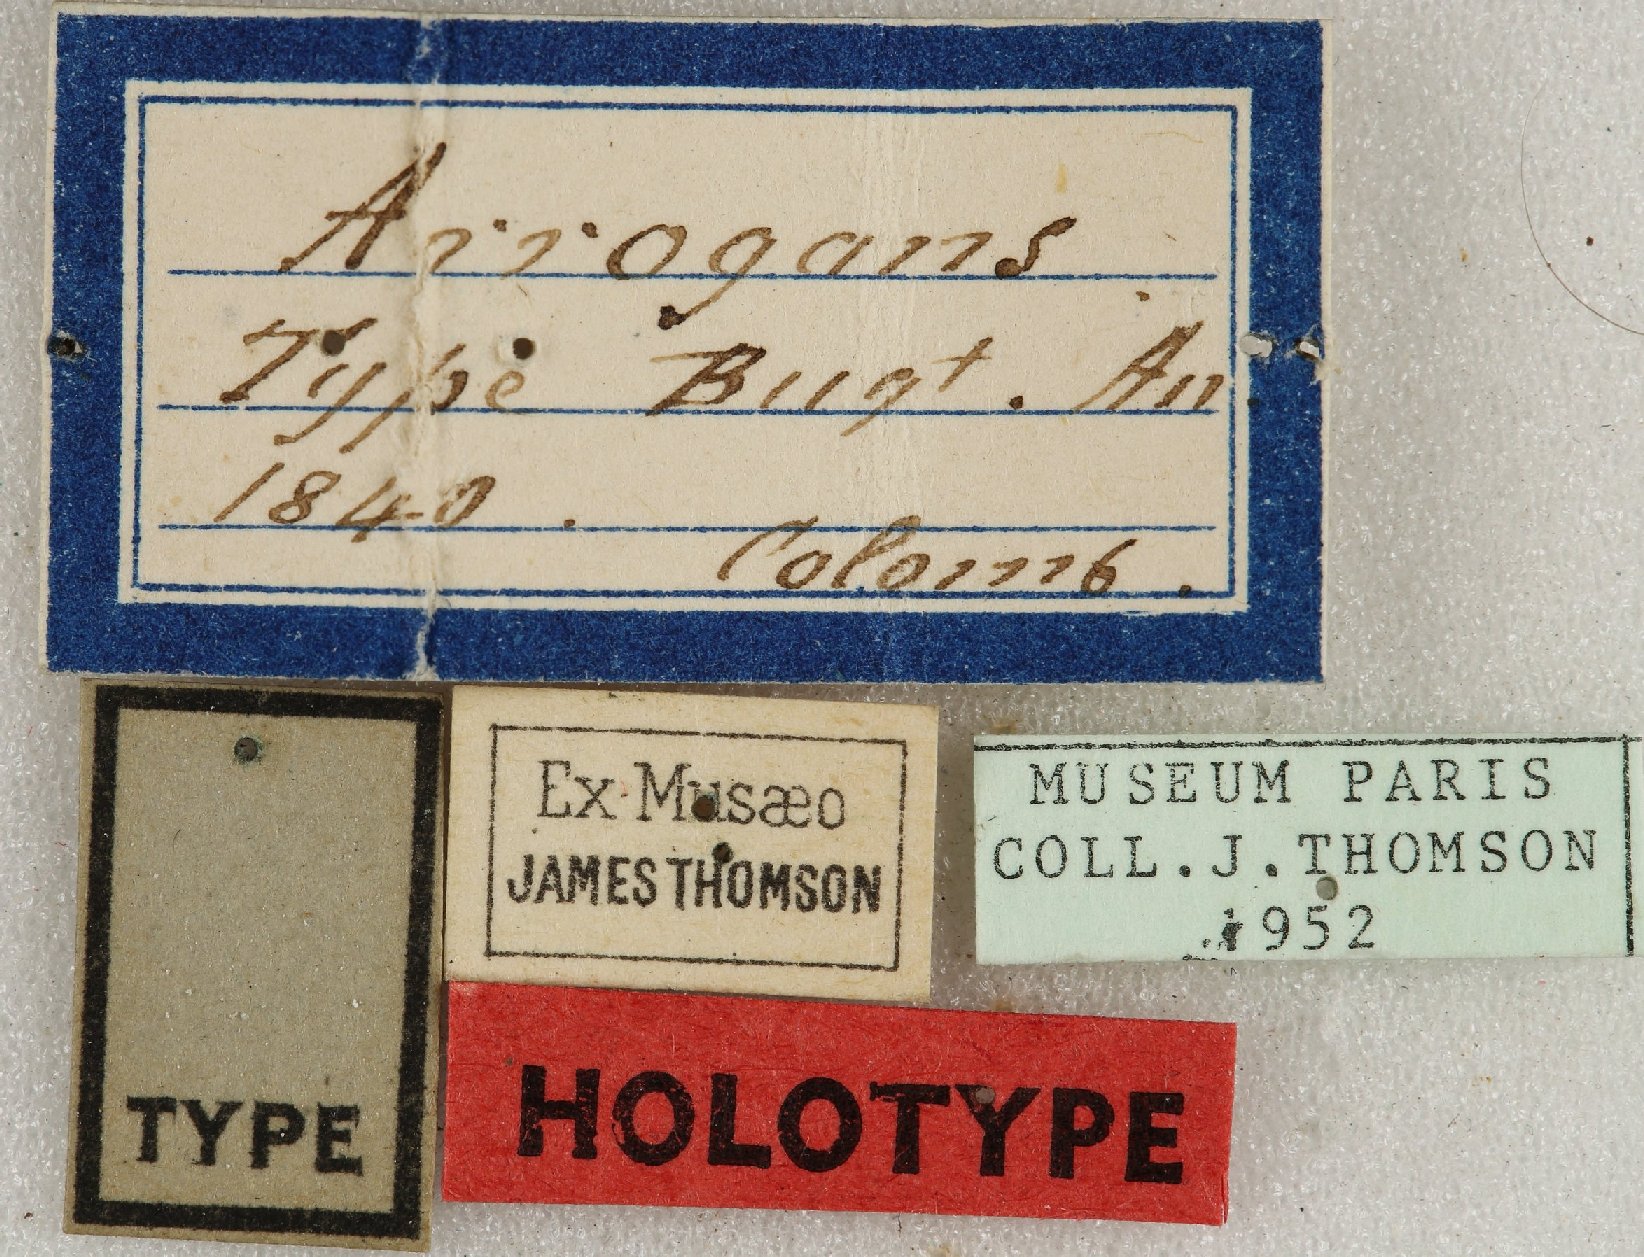 Arrogans
Type Buqt. An.
1840.
Colomb.
TYPE
Ex Musæo
JAMES THOMSON
MUSEUM PARIS
COLL. J. THOMSON
1952
HOLOTYPE